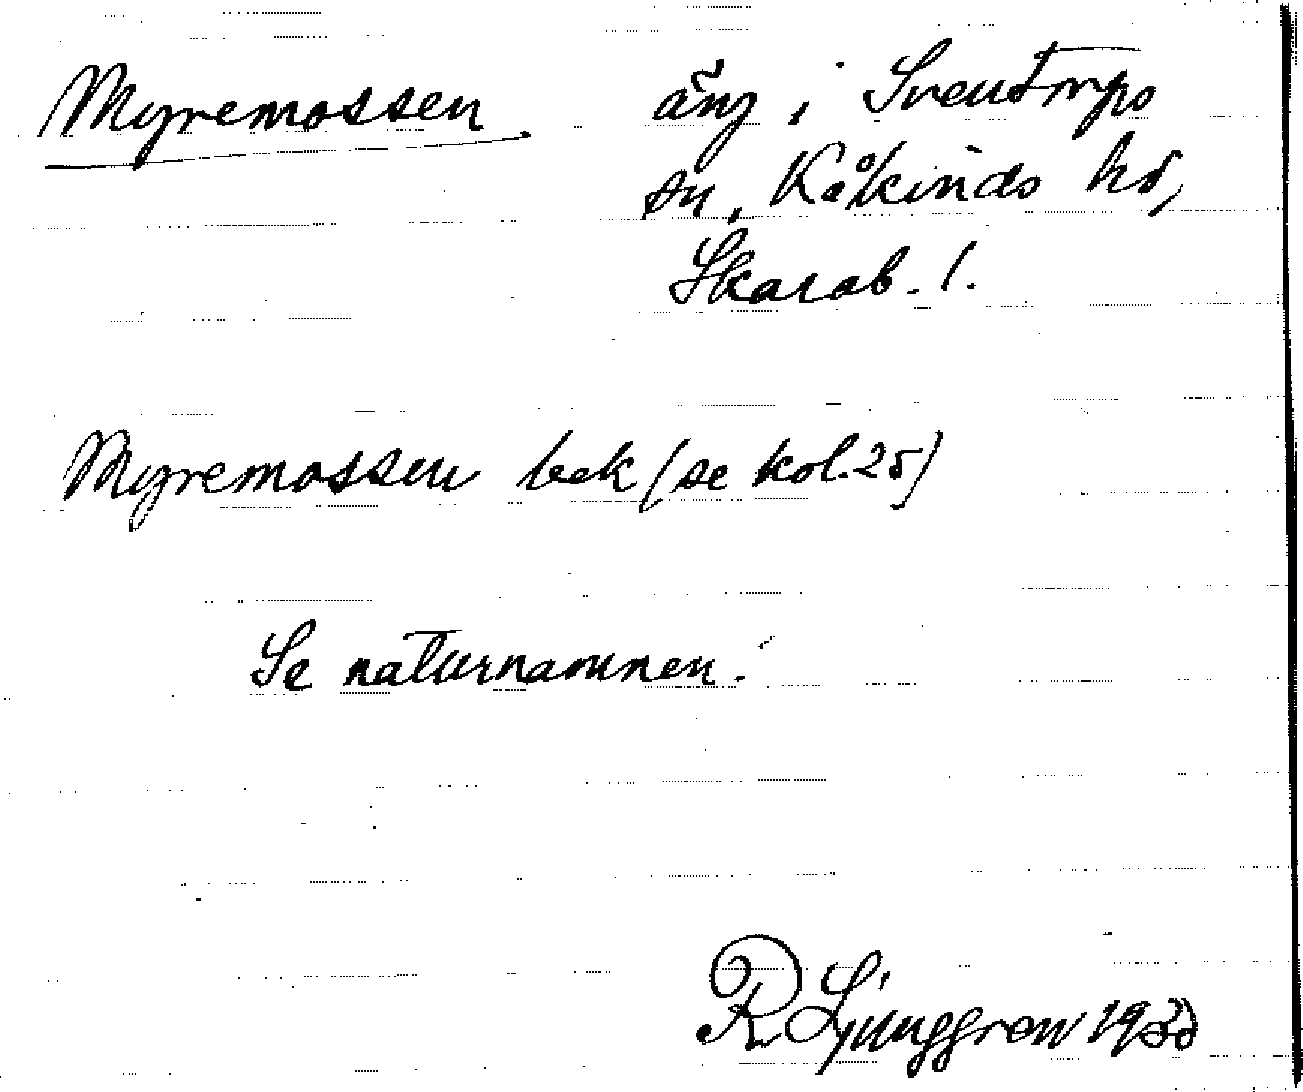 Myremossen äng i Sventorps
sn, Kåkinds hd,
Skarab. l.
Myremossen bek (se kol. 25)
Se naturnamnen.
R Ljunggren